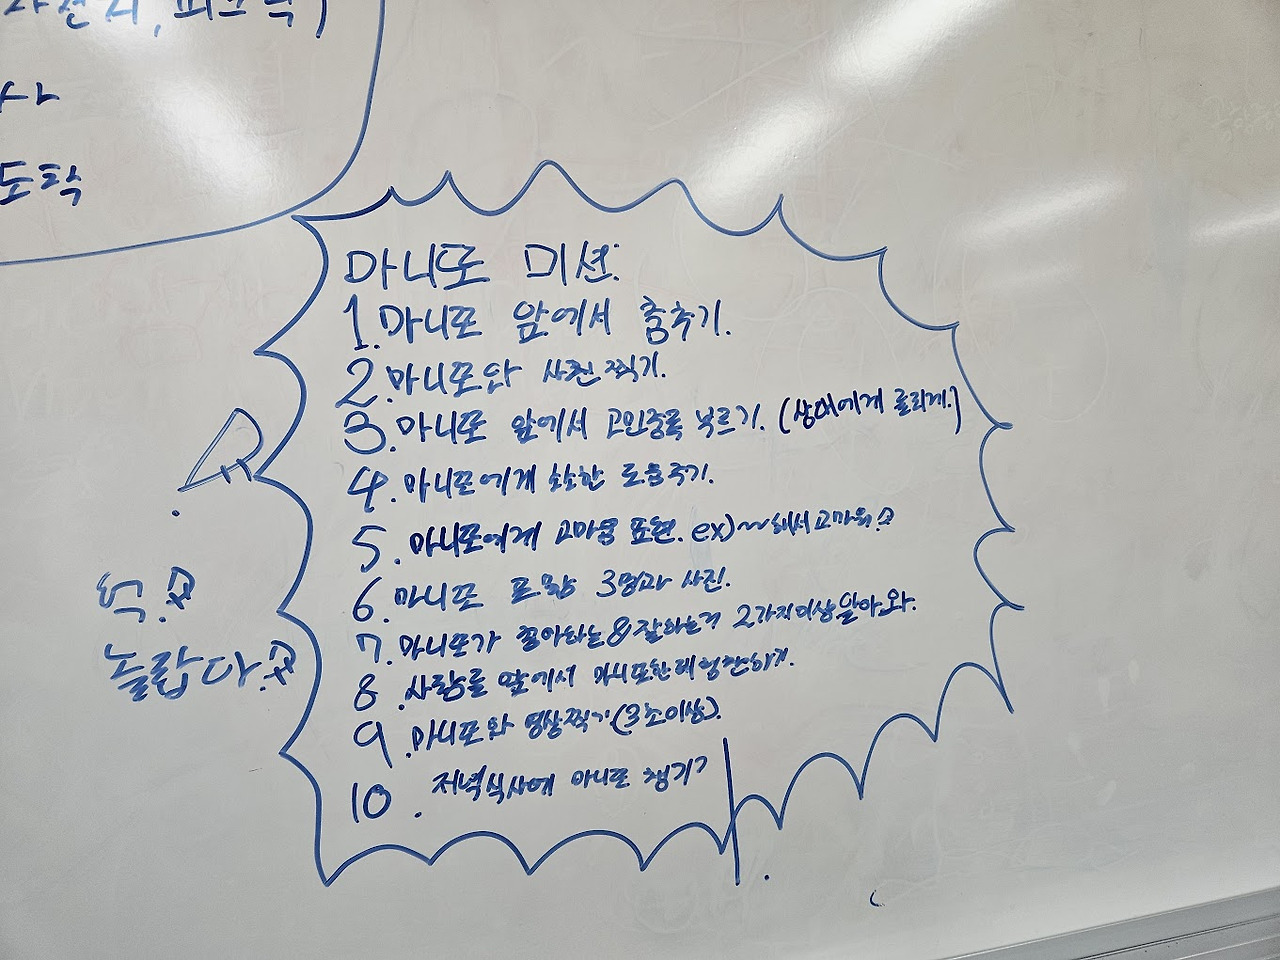 사
도탁
마니또 미션.
1.마니또 앞에서 춤추기.
2.마니또와 사진 찍기.
3.마니또 앞에서 고인중독 부르기. (상대에게 들리게.)
4.마니또에게 소소한 도움주기.
5.마니또에게 고마움 표현. ex)~~해서 고마워.
6.마니또 포함 3명과 사진.
7.마니또가 좋아하는&잘하는거 2가지이상 알아와.
8.사람들 앞에서 마니또한테 칭찬하기.
9.마니또와 영상찍기(3초이상).
10.저녁식사에 마니또 챙기기
놀랍다